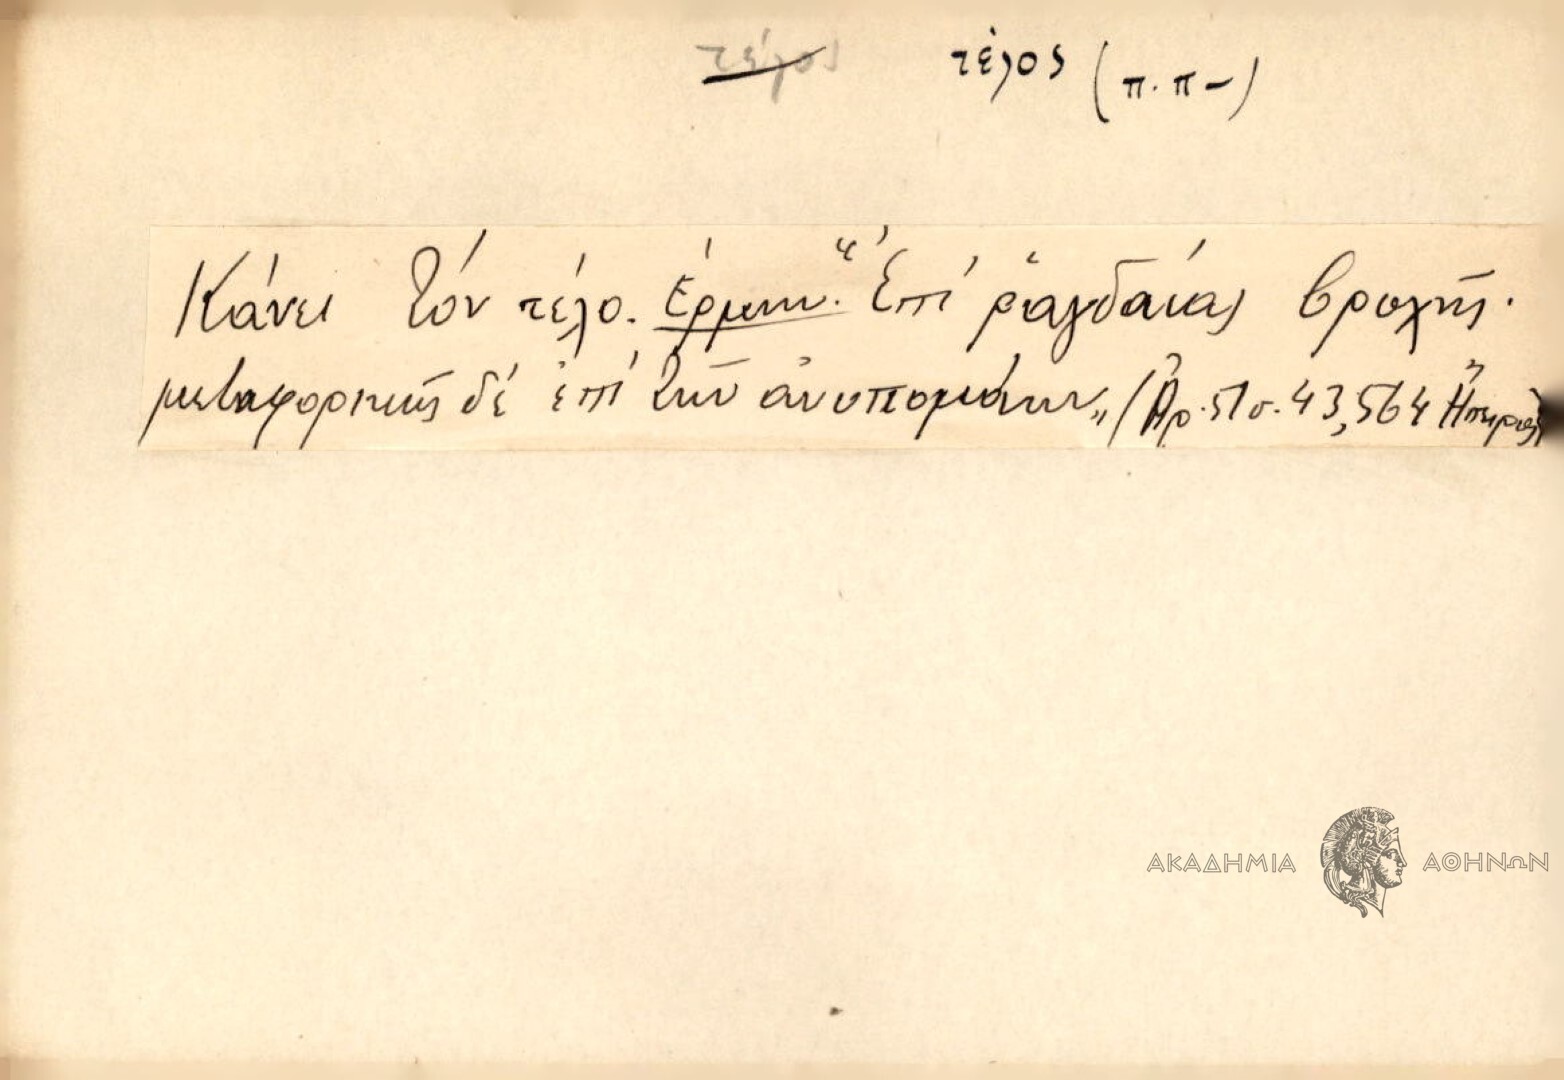 τέλος τέλος (π. π-)
Κάνει τόν τέλο. Ἑρμην. "Ἐπί ῥαγδαίας βροχῆς.
μεταφορικῶς δέ ἐπί τῶν ἀνυπομόνων„ (Ἀρ. 51 σ. 43, 564 Ἤπειρος)
ΑΚΑΔΗΜΙΑ ΑΘΗΝΩΝ